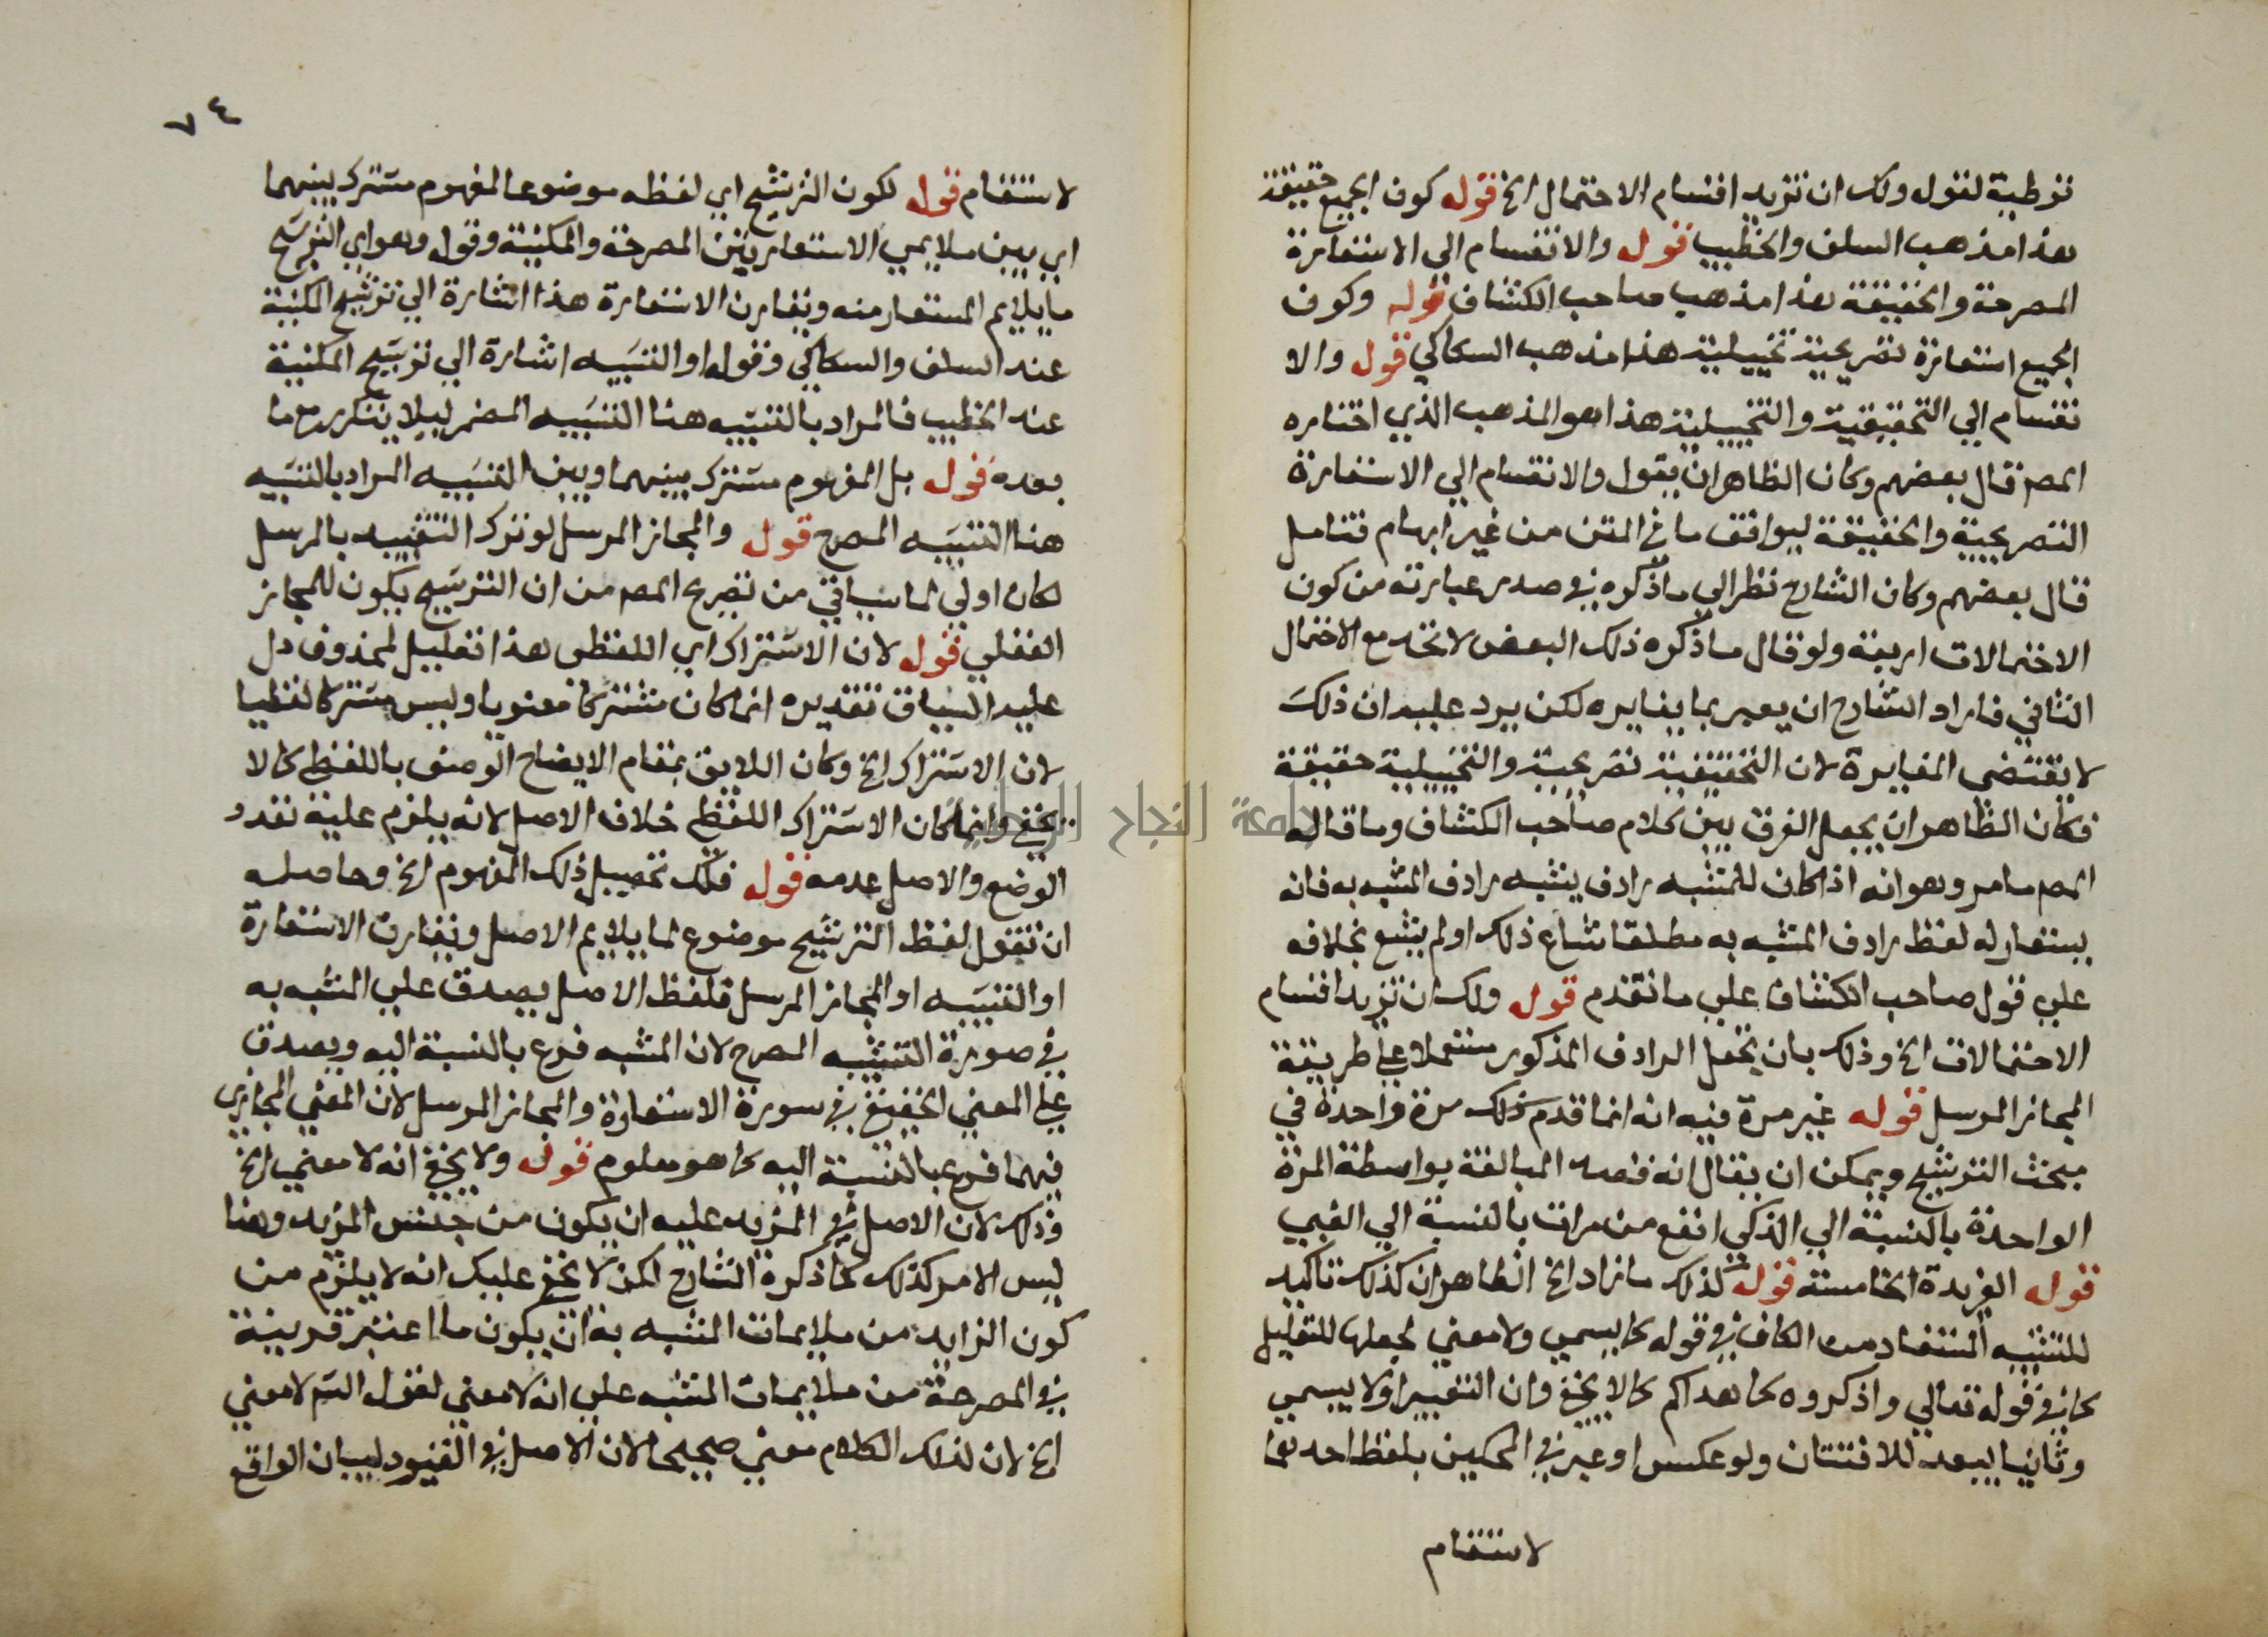 توطية لقوله ولك ان تزيد اقسام الاحتمال الخ قوله كون الجميع حقيقة
هذا مذهب السلف والخطيب قوله والانقسام الى الاستعارة
المصرحة والحقيقة هذا مذهب صاحب الكشاف قوله وكون
الجميع استعارة تصريحية تخييلية هذا مذهب السكاكي قوله والا
نقسام الي التحقيقية والتخييلية هذا هو المذهب الذي اختاره
المص قال بعضهم وكان الظاهر ان يقول والانقسام الي الاستعارة
التصريحية والحقيقة ليوافق ما في المتن من غير ابهام فتامل
قال بعضهم وكان الشارح نظر الي ما ذكره في صدر عبارته من كون
الاحتمالات اربعة ولو قال ما ذكره ذلك البعض لاتحد مع الاحتمال
الثاني فاراد الشارح ان يعبر بما يغايره لكن يرد عليه ان ذلك
لا يقتضى المغايرة لان التحقيقية تصريحية والتخييلية حقيقة
فكان الظاهر ان يجعل الفرق بين كلام صاحب الكشاف وما قاله
المص ما مر وهو انه اذا كان للمشبه رادف يشبه رادف المشبه به فانه
يستعار له لفظ رادف المشبه به مطلقا شاع ذلك او لم يشع بخلافه
علي قول صاحب الكشاف علي ما تقدم قوله ولك ان تزيد اقسام
الاحتمالات الخ وذلك بان يجعل الرادف المذكور مستعملا علي طريقة
المجاز المرسل قوله غير مرة فيه انه انما قدم ذلك مرة واحدة في
مبحث الترشيح ويمكن ان يقال انه قصد المبالغة بواسطة المرة
الواحدة بالنسبة الي الذكي انفع من مرات بالنسبة الي الغبي
قوله الفريدة الخامسة قوله كذلك ما زاد الخ الظاهر ان كذلك تاكيد
للتشبيه المستفاد من الكاف في قوله كما يسمي ولا معني لجعلها للتعليل
كما في قوله تعالي واذكروه كما هداكم كما لا يخفى وان التعبير اولا يسمي
وثانيا ليعد للافتتان ولو عكس او عبر في المحكين بلفظ احدهما
لاستقام
٧٤
لاستقام قوله لكون الترشيح اي لفظه موضوعا لمفهوم مشترك بينهما
اي بين ملايمي الاستعارتين المصرحة والمكنية وقوله وهو اي الترشيح
ما يلايم المستعار منه ويقارن الاستعارة هذا اشارة الي ترشيح المكنية
عند السلف والسكاكي وقوله او التشبيه اشارة الي ترشيح المكنية
عند الخطيب فالمراد بالتشبيه هنا التشبيه المضمر ليلا يتكرر مع ما
بعده قوله بل المفهوم مشترك بينهما وبين التشبيه المراد بالتشبيه
هنا التشبيه المصرح قوله والمجاز المرسل لو ترك التقييد بالمرسل
لكان اولي لما سياتي من تصريح المص من ان الترشيح يكون للمجاز
العقلي قوله لان الاشتراك اي اللفظي هذا تعليل لمحذوف دل
عليه السياق تقديره انما كان مشتركا معنويا وليس مشتركا لفظيا
لان الاشتراك الخ وكان اللايق بمقام الايضاح الوصف باللفظي كما لا
يخفى وانما كان الاشتراك اللفظي خلاف الاصل لانه يلزم عليه تعدد
الوضع والاصل عدمه قوله فلك تحصيل ذلك المفهوم الخ وحاصله
ان تقول لفظ الترشيح موضوع لما يلايم الاصل ويقارن الاستعارة
او التشبيه او المجاز المرسل فلفظ الاصل يصدق علي المشبه به
في صورة التشبيه المصرح لان المشبه فرع بالنسبة اليه ويصدق
علي المعني الحقيقي في سورة الاستعارة والمجاز المرسل لان المعني المجازي
فيهما فرع بالنسبة اليه كما هو معلوم قوله ولا يخفى انه لا معني الخ
وذلك لان الاصل في المزيد عليه ان يكون من جنس المزيد وهنا
ليس الامر كذلك كما ذكره الشارح لكن لا يخفى عليك انه لا يلزم من
كون الزايد من ملايمات المشبه به ان يكون ما اعتبر قرينة
في المصرحة من ملايمات المشبه علي انه لا معني لقول الش لا معني
الخ لان لذلك الكلام معني صحيحا لان الاصل في القيود لبيان الواقع
جامعة النجاح الوطنية